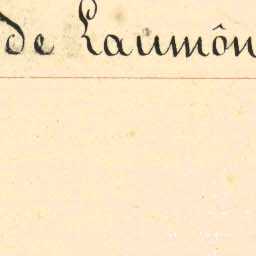 de Laumôn